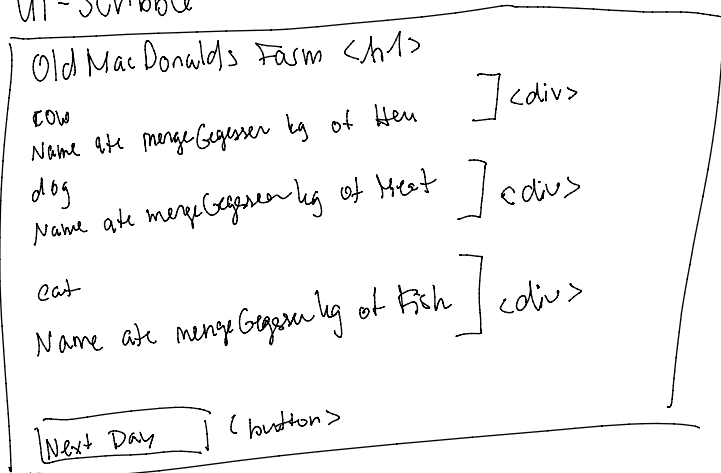 UI-Scribble
Old MacDonalds Farm <h1>
cow
Name ate mengeGegessen kg of Heu <div>
dog
Name ate mengeGegessen kg of Meat <div>
cat
Name ate mengeGegessen kg of Fish <div>
Next Day <button>